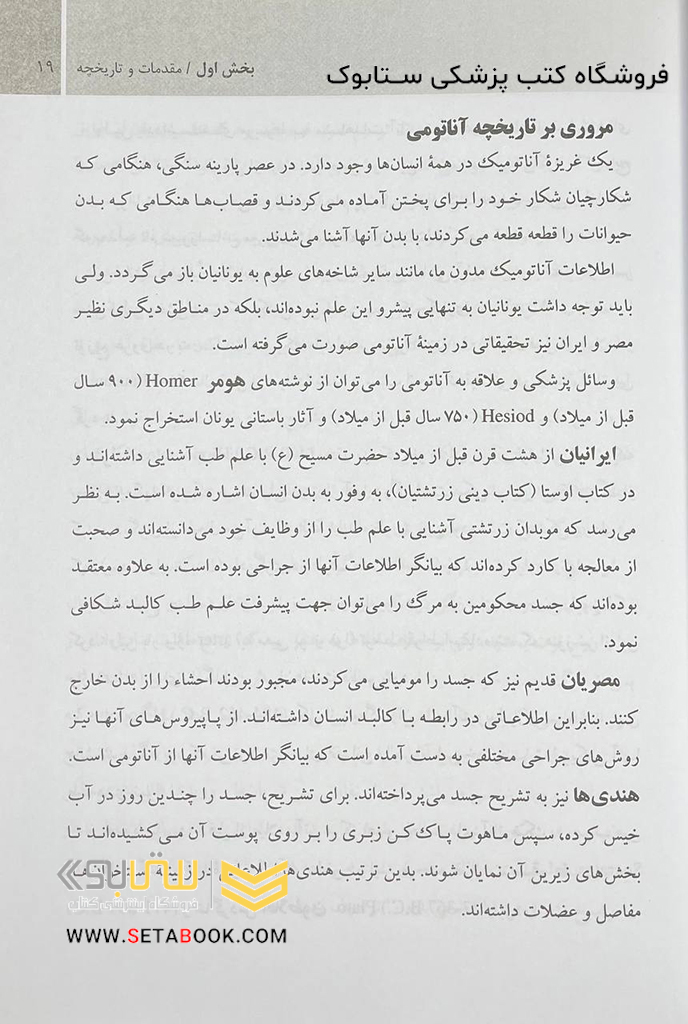 فروشگاه کتب پزشکی ستابوک
بخش اول / مقدمات و تاریخچه ۱۹
مروری بر تاریخچه آناتومی
یک غریزهٔ آناتومیک در همهٔ انسان‌ها وجود دارد. در عصر پارینه سنگی، هنگامی که
شکارچیان شکار خود را برای پختن آماده می‌کردند و قصاب‌ها هنگامی که بدن
حیوانات را قطعه قطعه می‌کردند، با بدن آنها آشنا می‌شدند.
اطلاعات آناتومیک مدون ما، مانند سایر شاخه‌های علوم به یونانیان باز می‌گردد. ولی
باید توجه داشت یونانیان به تنهایی پیشرو این علم نبوده‌اند، بلکه در مناطق دیگری نظیر
مصر و ایران نیز تحقیقاتی در زمینهٔ آناتومی صورت می‌گرفته است.
وسائل پزشکی و علاقه به آناتومی را می‌توان از نوشته‌های هومر Homer (۹۰۰ سال
قبل از میلاد) و Hesiod (۷۵۰ سال قبل از میلاد) و آثار باستانی یونان استخراج نمود.
ایرانیان از هشت قرن قبل از میلاد حضرت مسیح (ع) با علم طب آشنایی داشته‌اند و
در کتاب اوستا (کتاب دینی زرتشتیان)، به وفور به بدن انسان اشاره شده است. به نظر
می‌رسد که موبدان زرتشتی آشنایی با علم طب را از وظایف خود می‌دانسته‌اند و صحبت
از معالجه با کارد کرده‌اند که بیانگر اطلاعات آنها از جراحی بوده است. به علاوه معتقد
بوده‌اند که جسد محکومین به مرگ را می‌توان جهت پیشرفت علم طب کالبد شکافی
نمود.
مصریان قدیم نیز که جسد را مومیایی می‌کردند، مجبور بودند احشاء را از بدن خارج
کنند. بنابراین اطلاعاتی در رابطه با کالبد انسان داشته‌اند. از پاپیروس‌های آنها نیز
روش‌های جراحی مختلفی به دست آمده است که بیانگر اطلاعات آنها از آناتومی است.
هندی‌ها نیز به تشریح جسد می‌پرداخته‌اند. برای تشریح، جسد را چندین روز در آب
خیس کرده، سپس ماهوت پاک‌کن زبری را بر روی پوست آن می‌کشیده‌اند تا
بخش‌های زیرین آن نمایان شوند. بدین ترتیب هندی‌ها اطلاعاتی در زمینهٔ استخوان‌ها،
مفاصل و عضلات داشته‌اند.
ستابوک
فروشگاه اینترنتی کتاب
WWW.SETABOOK.COM